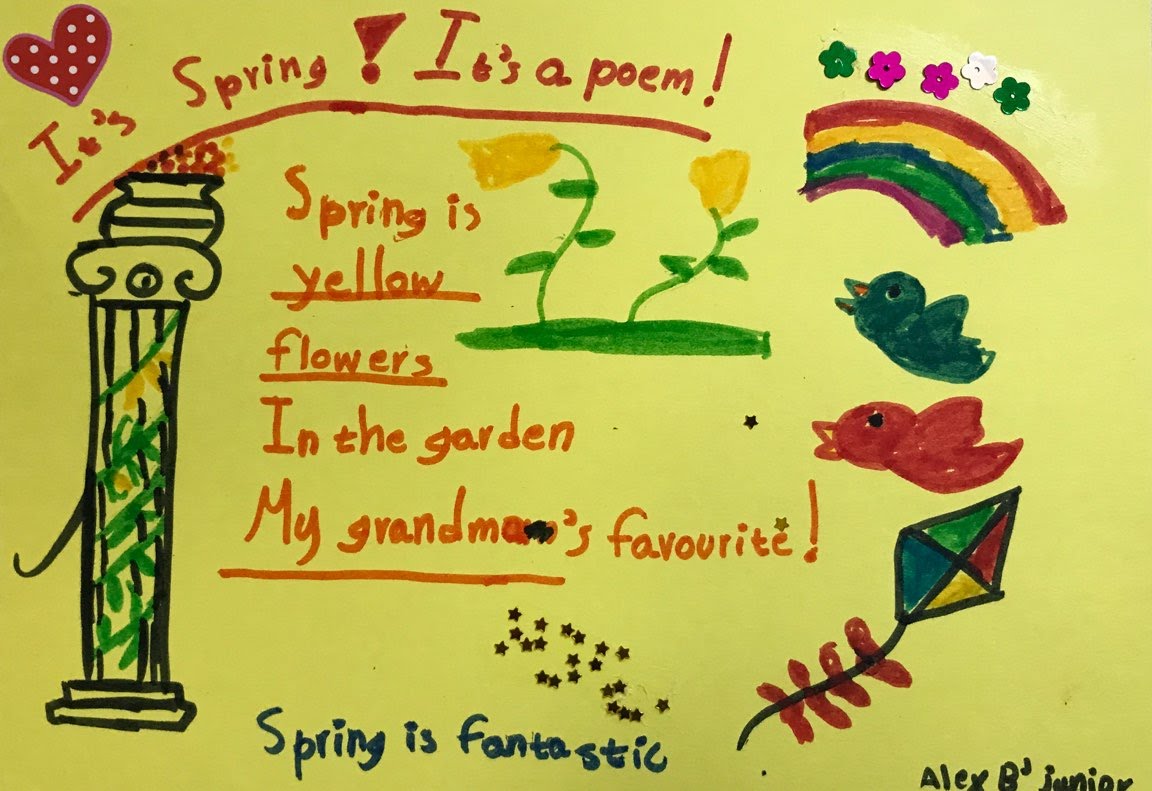 It's Spring! It's a poem!
Spring is
yellow
flowers
In the garden
My grandma's favourite!
Spring is fantastic
Alex B' junior